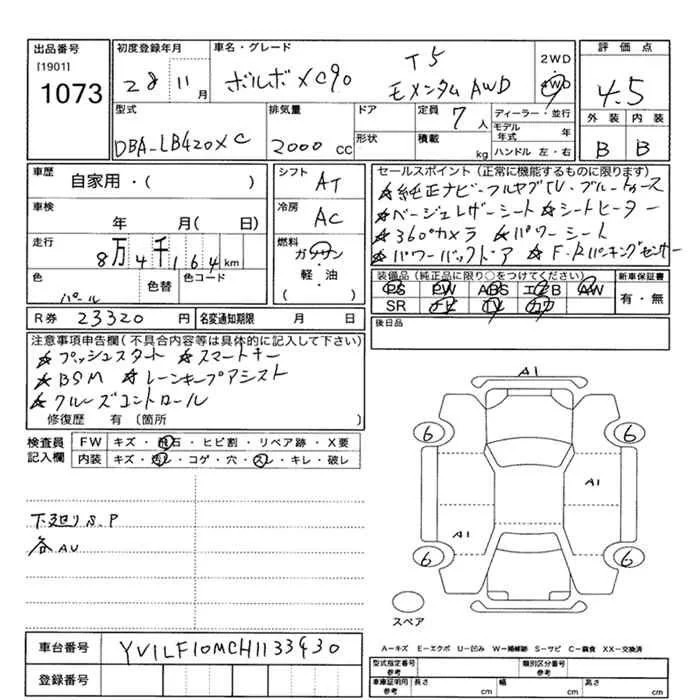 出品番号 初度登録年月 車名・グレード 評価点
[1901] 1073
28 11月 ボルボXC90 T5 モメンタムAWD 2WD 4WD 4.5
型式 排気量 ドア 定員 7人 ディーラー・並行 外装 内装
DBA-LB420XC 2000cc 形状 積載 kg モデル年式 年 ハンドル 左・右 B B
車歴 自家用・( ) シフト AT
セールスポイント(正常に機能するものに限ります)
☆純正ナビ フルセグTV
☆ベージュレザーシート ☆シートヒーター
☆360°カメラ ☆パワーシート
☆パワーバックドア ☆F.Rパーキングセンサー
車検 年 月( 日) 冷房 AC
走行 8万4千164km 燃料 ガソリン・軽・油 ( )
色 パール 色替 色コード
装備品(純正品に限り○をつけてください) 新車保証書
PS PW ABS エアB AW 有・無
SR ナビ TV カワ
R券 23320円 名変通知期限 月 日 後日品
注意事項申告欄(不具合内容等は具体的に記入して下さい)
☆プッシュスタート ☆スマートキー
☆BSM ☆レーンキープアシスト
☆クルーズコントロール
修復歴 有〔箇所 〕
検査員 FW キズ・飛石・ヒビ割・リペア跡・X要
記入欄 内装 キズ・汚レ・コゲ・穴・スレ・キレ・破レ
下廻りS.P
各AU
A1
6 6
A1
A1
6 6
スペア
車台番号 YV1LF10MCH1133430
登録番号
A-キズ E-エクボ U-凹み W-補修跡 S-サビ C-腐食 XX-交換済
型式指定番号 参考 類別区分番号 参考
車庫証明用 参考 長さ cm 幅 cm 高さ cm